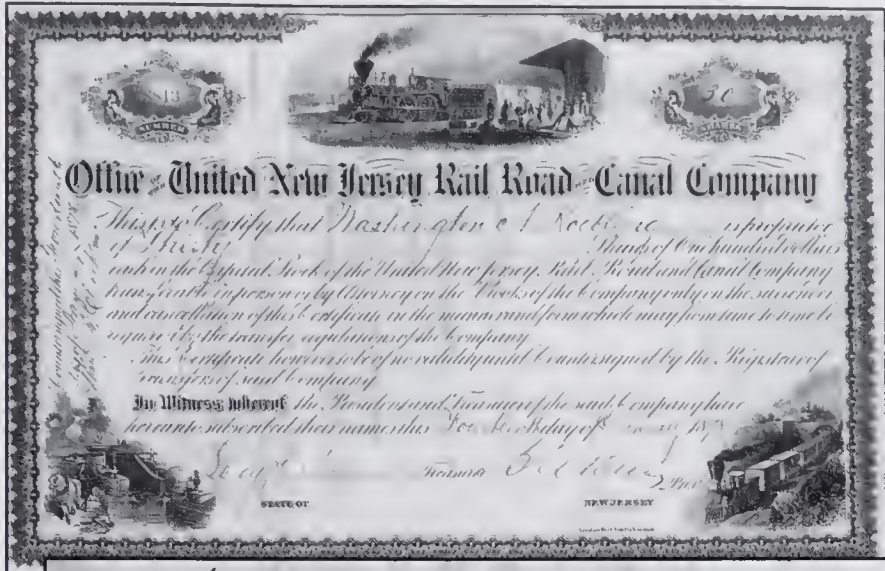 NUMBER
30
SHARES
Office OF THE United New Jersey Rail Road AND Canal Company
This is to Certify that Washington A. Roebling is proprietor
of Thirty Shares of One hundred dollars
each in the Capital Stock of the United New Jersey Rail Road and Canal Company
transferable in person or by Attorney on the Books of the Company only on the surrender
and cancellation of this Certificate in the manner and form which may from time to time be
required by the transfer regulations of the Company
This Certificate however to be of no validity until Countersigned by the Registrar of
Transfers of said Company
In Witness whereof the President and Treasurer of the said Company have
hereunto subscribed their names this day of
Treasurer Pres
STATE OF NEW JERSEY